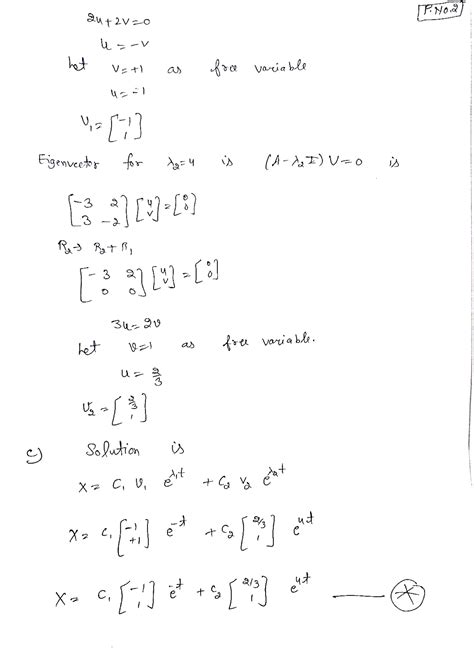 P.No.2
2u+2v=0
u=-v
Let v=+1 as free variable
u=-1
V₁=[-1 1]
Eigenvector for λ₂=4 is (A-λ₂I)V=0 is
[-3 2 3 -2][u v]=[0 0]
R₂→R₂+R₁
[-3 2 0 0][u v]=[0 0]
3u=2v
Let v=1 as free variable.
u=2/3
V₂=[2/3 1]
c) Solution is
X= C₁ V₁ e^λ₁t + C₂ V₂ e^λ₂t
X= C₁[-1 +1] e^-t + C₂[2/3 1] e^4t
X= C₁[-1 1] e^-t + C₂[2/3 1] e^4t — *